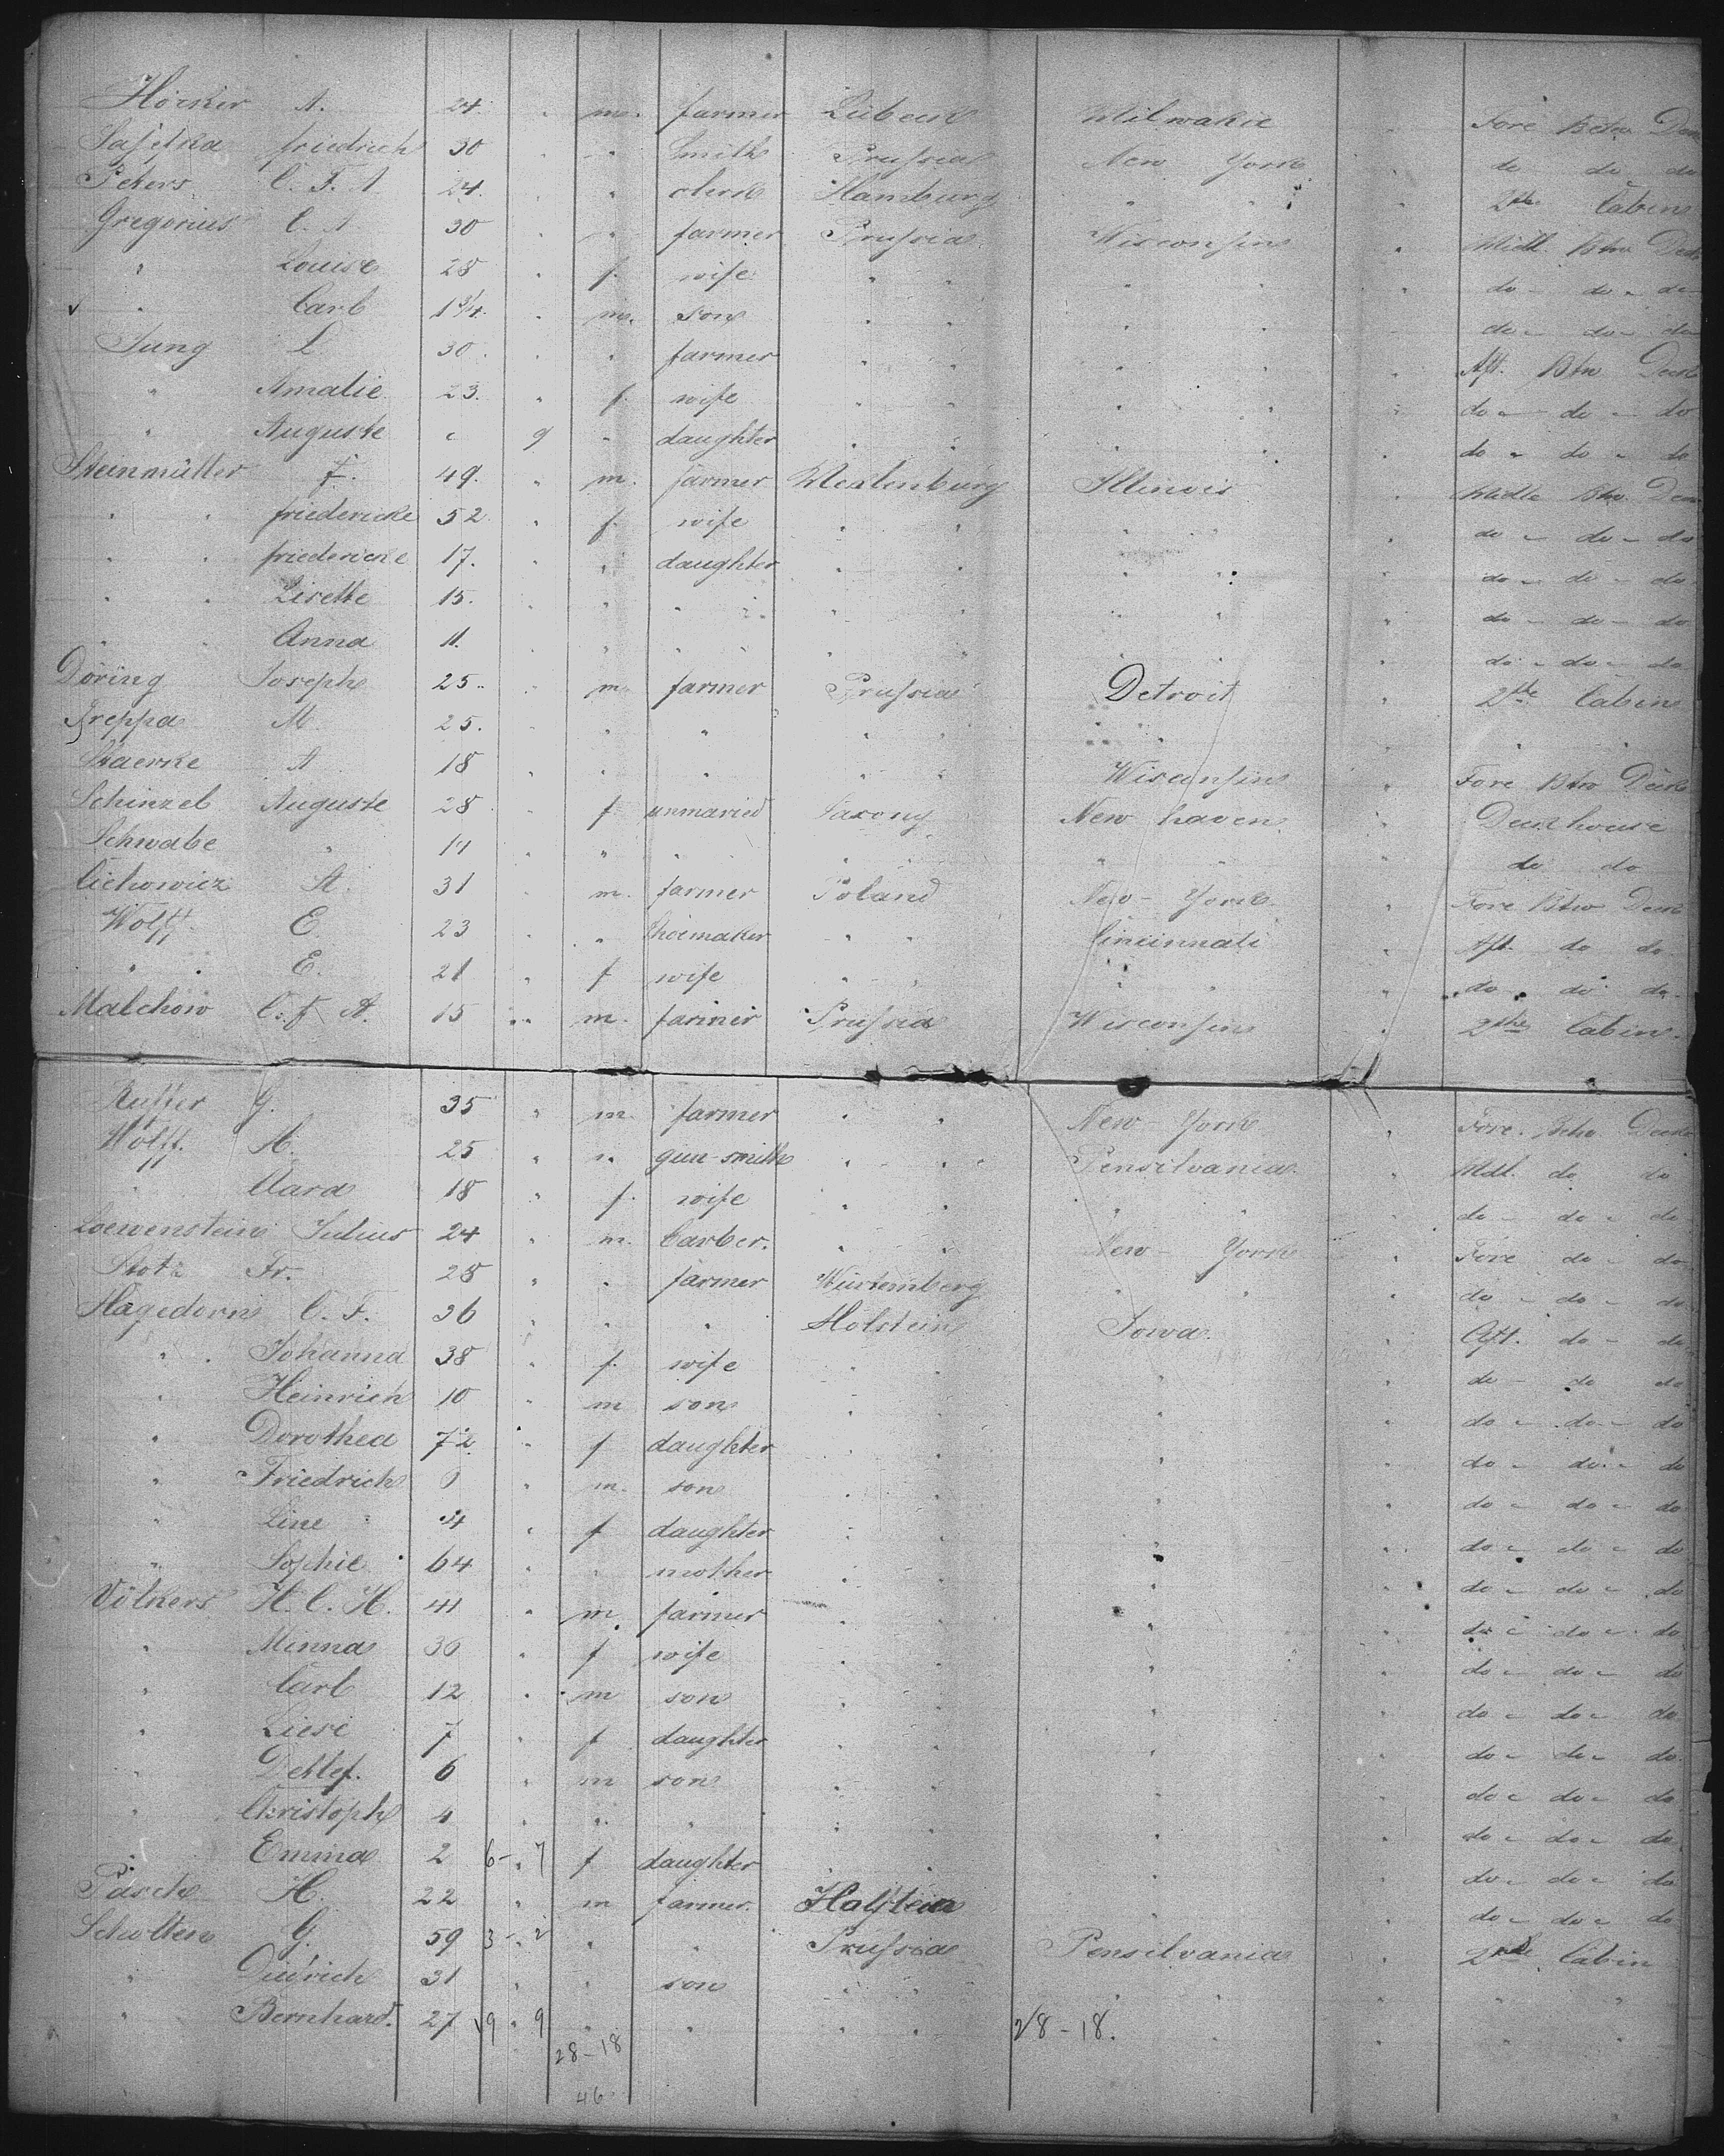 Höcker A. 24. " m. farmer Lübeck Milwakie " Fore Betw Deck
friedrich 30 " " Smith Prussia New York do do do
Peters C. F. A. 24. " " clerk Hamburg " " " 2the Cabin
Gregorius C. A. 30 " " farmer Prussia Wisconsin " Midl. Btw Deck
" Louise 28 " f. wife " " " " " do - do - do
" Carl 1 3/4. " m. son " " " " do - do - do
Jung L 30. " " farmer " " " " " Aft. Btw Deck
" Amalie 23. " f. wife " " " " " do - do - do
" Auguste " 9 " daughter " " " " " do - do - do
Steinmüller f. 49. " m. farmer Meklenburg Illinois " Middle Btw Deck
" " friedericke 52 " f. wife " " " " " do - do - do
" " friedericke 17. " " daughter " " " " " do - do - do
" " Lisette 15. " " " " " " " " do - do - do
" " Anna 11. " " " " " " " do - do - do
Döring Joseph 25. " m. farmer Prussia Detroit " 2the Cabin
Freppa M 25. " " " " " " " " " "
Staerke A 18 " " " " " Wisconsin " Fore Btw Deck
Schinzel Auguste 28 " f unmaried Saxony New haven " Deckhouse
Schwabe " 14 " " " " " " " " do do
Cichowicz St. 31 " m. farmer Poland New - York " Fore Btw Deck
Wolff. E. 23 " " Shoemaker " " Cincinnati " Aft. do do
" " E. 21 " f wife " " " " " do do do
Malchow C. f. A. 15 " m. farmer Prussia Wisconsin " 2the Cabin
G. 35 " m farmer " " New - York " Fore. Betw Deck
Wolff. A. 25 " " gun-smith " " Pensilvania " Mdl. do do
" Clara 18 " f. wife " " " " " do - do - do
Loewenstein Julius 24 " m. barber. " " New - York " Fore do - do
Stotz Fr. 28 " " farmer Würtemberg " " " do - do - do
Hagedorn C. F. 36 " " " Holstein Iowa. " Aft. do - do
" Johanna 38 " f. wife " " " do - do do
" Heinrich 10 " m son " " " do - do - do
" Dorothea 7 1/2 " f daughter " " " " do - do - do
" Friedrich " m. son " " " " do - do - do
" Line " f daughter " " " " do - do - do
" Sophie 64 " " mother " " " " do - do - do
Völkers H. C. H. 41 " m. farmer " " " " do - do - do
" Minna 36 " f wife " " " " do - do - do
" Carl 12 " m son " " " " do - do - do
" Liese 7 " f daughter " " " " do - do - do
" Detlef. 6 " m son " " " " do - do - do
" Christoph 4 " " " " " " " do - do - do
" Emma 2 6 - " 7 f daughter " " " " do - do - do
Pasch H. 22 " m farmer. Holstein " " do - do - do
Scholten G. 59 3 - " 2 " " Prussia Pensilvania " 2the Cabin
" Diedrich 31 " " son " " " " " " "
" Bernhard. 27 19 " 9 " " " " 28 - 18. " " " "
28 - 18
46